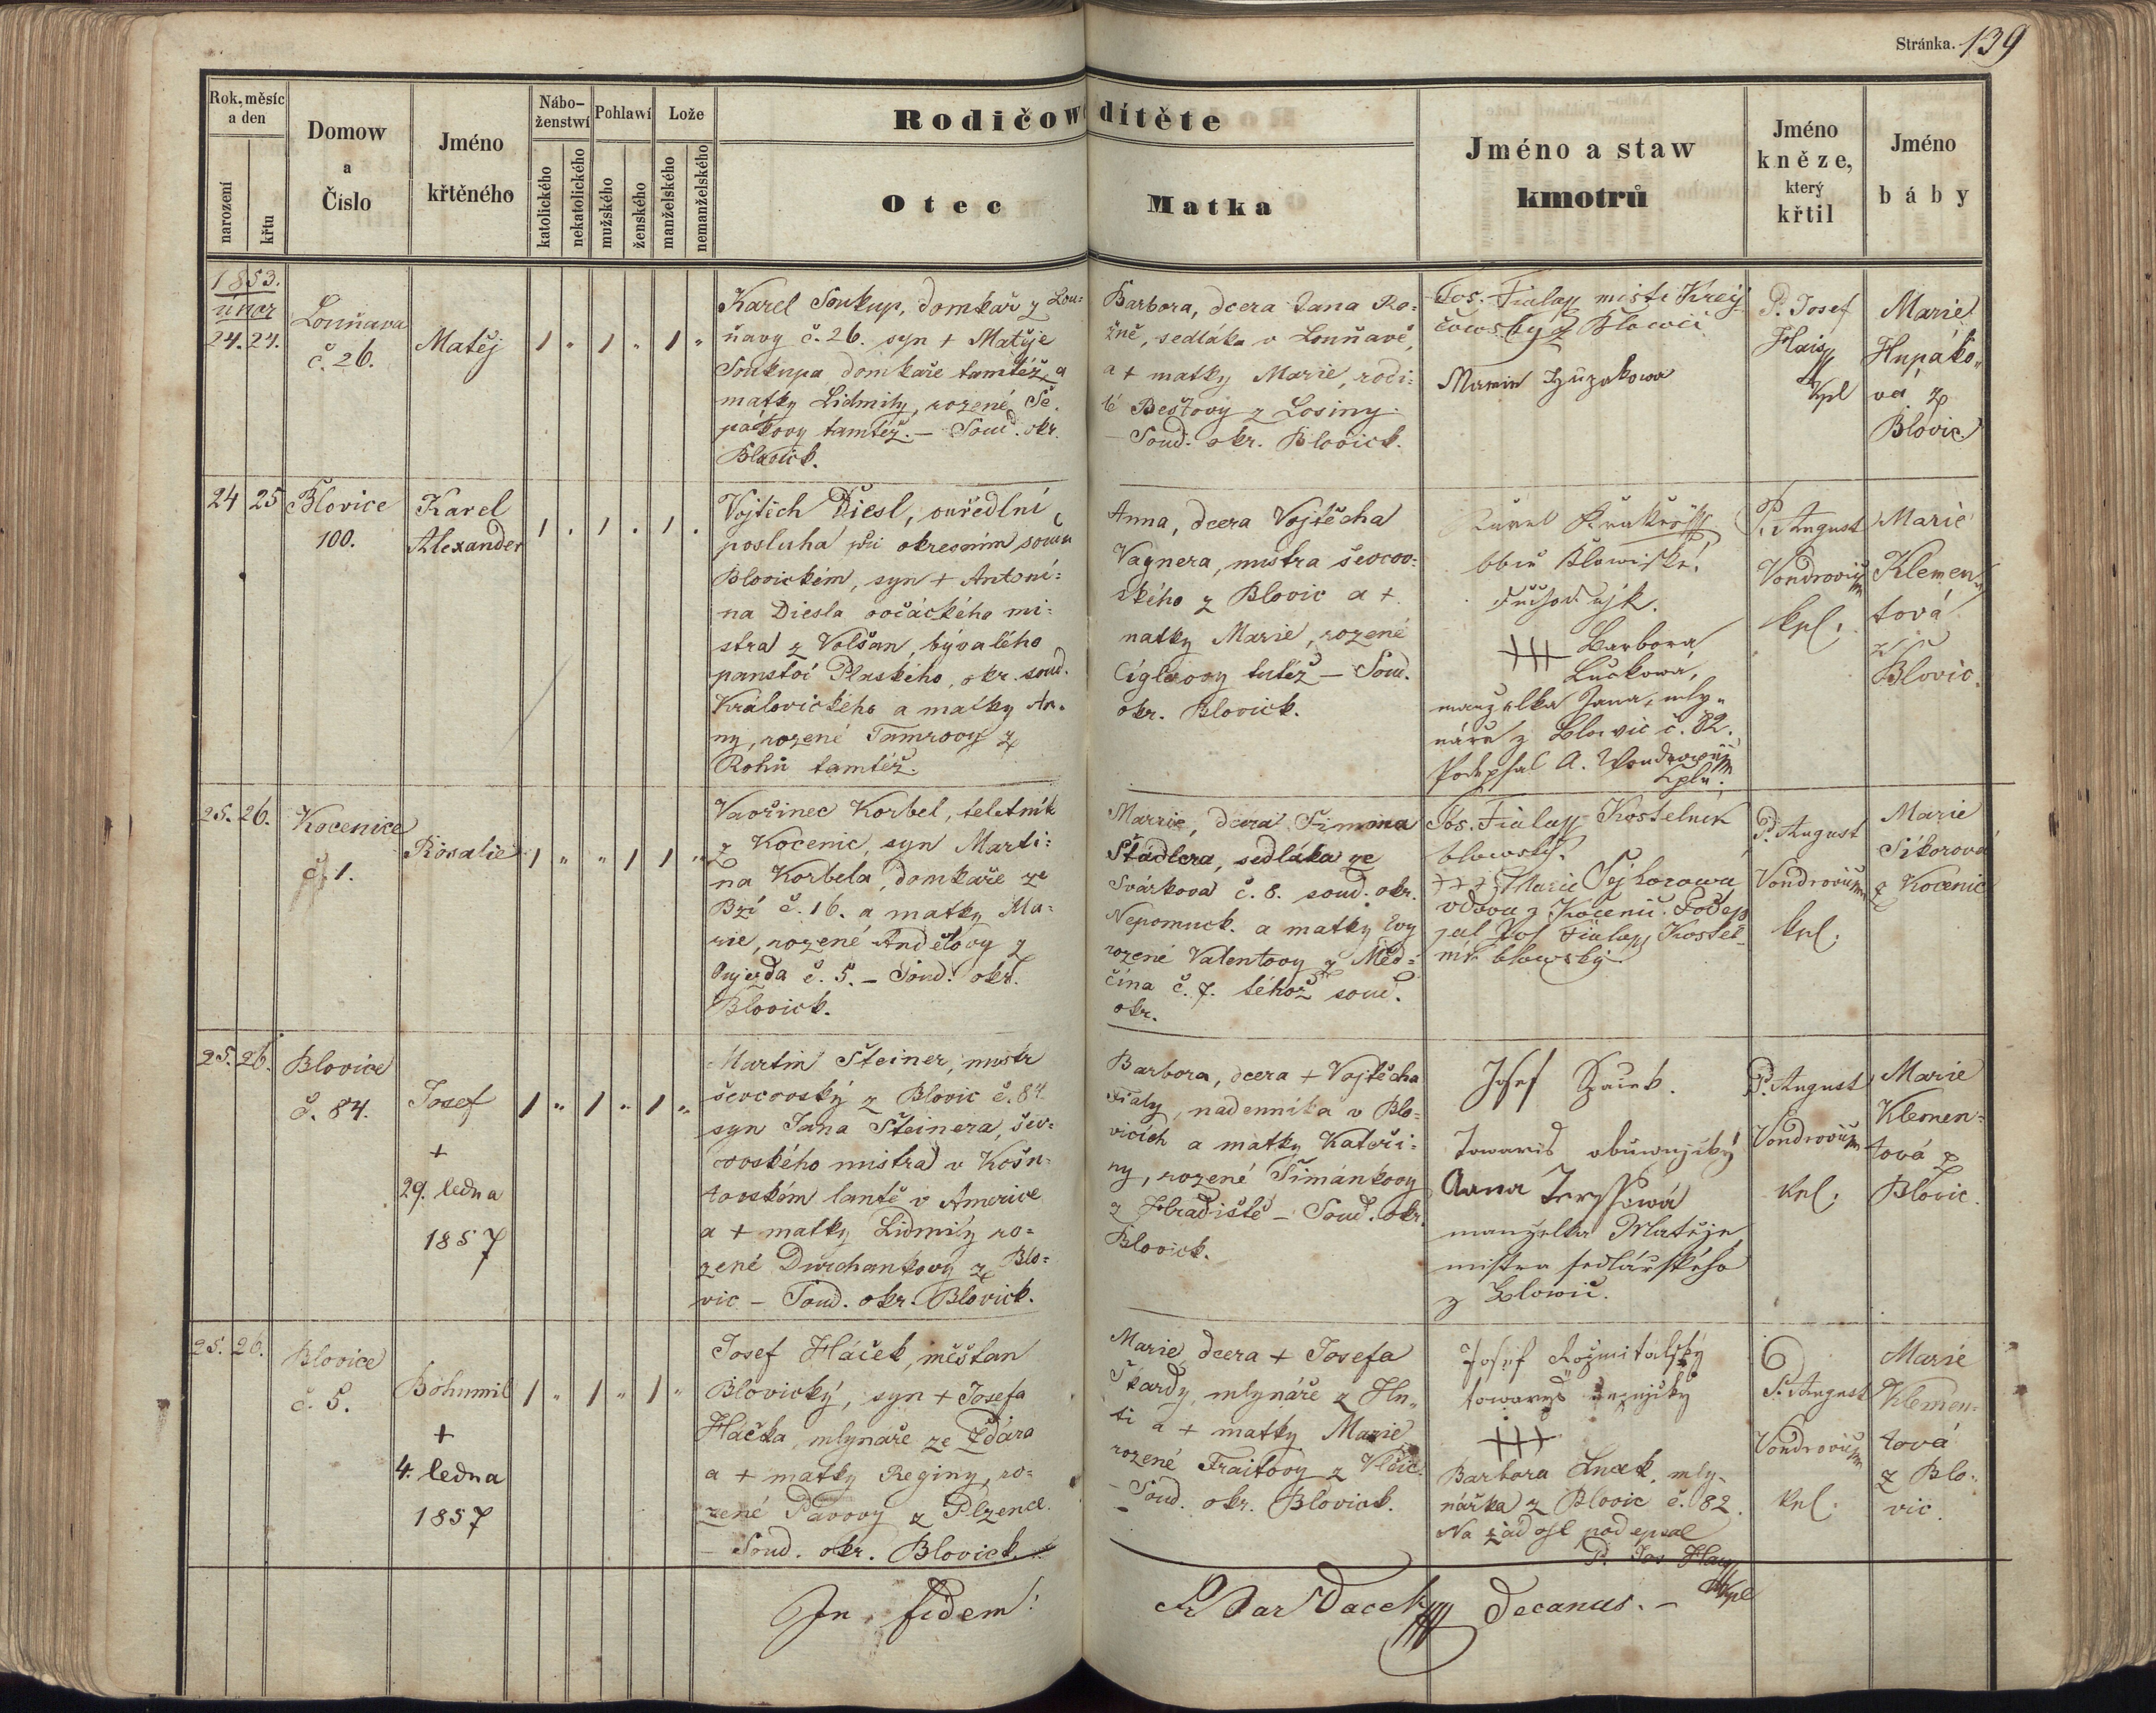 Stránka. 139
Rok, měsíc
a den
narození
křtu
Domow
a
Čislo
Jméno
křtěného
Nábo-
ženstwí
katolického
nekatolického
Pohlawí
mužského
ženského
Lože
manželského
nemanželského
Rodičowé dítěte
Otec
Matka
Jméno a staw
kmotrů
Jméno
kněze,
který
křtil
Jméno
báby
1853.
únor
24. 24.
Louňava
č. 26.
Matěj
1 " 1 " 1 "
Karel Soukup, domkař z Lou=
ňavy č. 26. syn + Matěje
Soukupa domkaře tamtéž a
matky Lidmily, rozené Še
pákovy tamtéž. – Soud. okr.
Blovick.
Barbora, dcera Jana Ro=
žně, sedláka v Louňavě,
a + matky Marie, rodi=
té Beštovy z Losiny.
– Soud. okr. Blovick.
Jos. Fiala místr Krej
čowsky z Blowic
Marie
P. Josef
Hais
Kpl
Marie
Hupáko„
vá z
Blovic
24 25
Blovice
100.
Karel
Alexander
1 . 1 . 1 .
Vojtěch Diesl, ouředlní
posluha při okresním soudu
Blovickém, syn + Antoni=
na Diesla ovčáckého mi=
stra z Volšan, bývalého
panství Plaského, okr. soud.
Královického a matky An=
ny, rozené Tamrovy z
Rohů tamtéž.
Anna, dcera Vojtěcha
Vagnera, mistra ševcov=
ského z Blovic a +
matky Marie, rozené
Cíglerovy tutéž – Soud.
okr. Blovick.
Karel
Blowické
+++ Barbora
Lučkowá,
manzelka Jana, mly„
náře z Blowic č. 82.
Podepsal A. Wondrowic
kpln.
P. August
Vondrovic
kpl.
Marie
Klemen„
tová
z
Blovic.
25. 26.
Kocenice
č. 1.
Rosalie
1 " " 1 1 "
Vavřinec Korbel, teletník
z Kocenic, syn Marti=
na Korbela, domkaře ze
Bzí č. 16. a matky Ma=
rie, rozené Andělovy z
Oujezda č. 5. – Soud. okr.
Blovick.
Marie, dcera Šimona
Štádlera, sedláka ze
Svárkova č. 8. soud. okr.
Nepomuck. a matky Evy
rozené Valentovy z Měd=
čína č. 7. téhož soud.
okr.
Jos. Fiala Kostelník
blowský.
+++ Marie Sejkorowa
vdova z Kocenic. Podep
sal Jos Fiala Kostel
ník blowský
P. August
Vondrovic
kpl.
Marie
Sikorová
z Kocenic
25. 26.
Blovice
č. 84.
Josef
+
29. ledna
1857
1 " 1 " 1 "
Martin Šteiner, mistr
ševcovský z Blovic č. 84
syn Jana Šteinera, šev=
covského mistra v Košn=
tovském lantě v Americe
a + matky Lidmily ro=
zené Durchankovy z Blo=
vic – Soud. okr. Blovick.
Barbora, dcera + Vojtěcha
Fialy, nádenníka v Blo=
vicích a matky Kateři=
ny, rozené Šimánkovy
z Hradiště – Soud. okr.
Blovick.
Josef
Towariš obuwnický
Anna
manzelka Matěje,
mistra sedlářského
z Blowic.
P. August
Vondrovic
kpl.
Marie
Klemen=
tová z
Blovic.
25. 26.
Blovice
č. 5.
Bohumil
+
4. ledna
1857
1 " 1 " 1 "
Josef Háček, měšťan
Blovický, syn + Josefa
Háčka, mlynáře ze Ždára
a + matky Reginy, ro=
zené Pavovy z Plzence.
– Soud. okr. Blovick.
Marie, dcera + Josefa
Škardy, mlynáře z Hu„
ti a + matky Marie
rozené Fraitovy z Vlčic.
– Soud. okr. Blovick.
Josef Rožmitalský
towaryš
+++
Barbora Lucek, mly„
nářka z Blovic č. 82.
Na žádost podepsal
P. Jos Hays
Kpl
P. August
Vondrovic
kpl.
Marie
Klemen=
tová
z Blo=
vic.
In fidem!
decanus. –